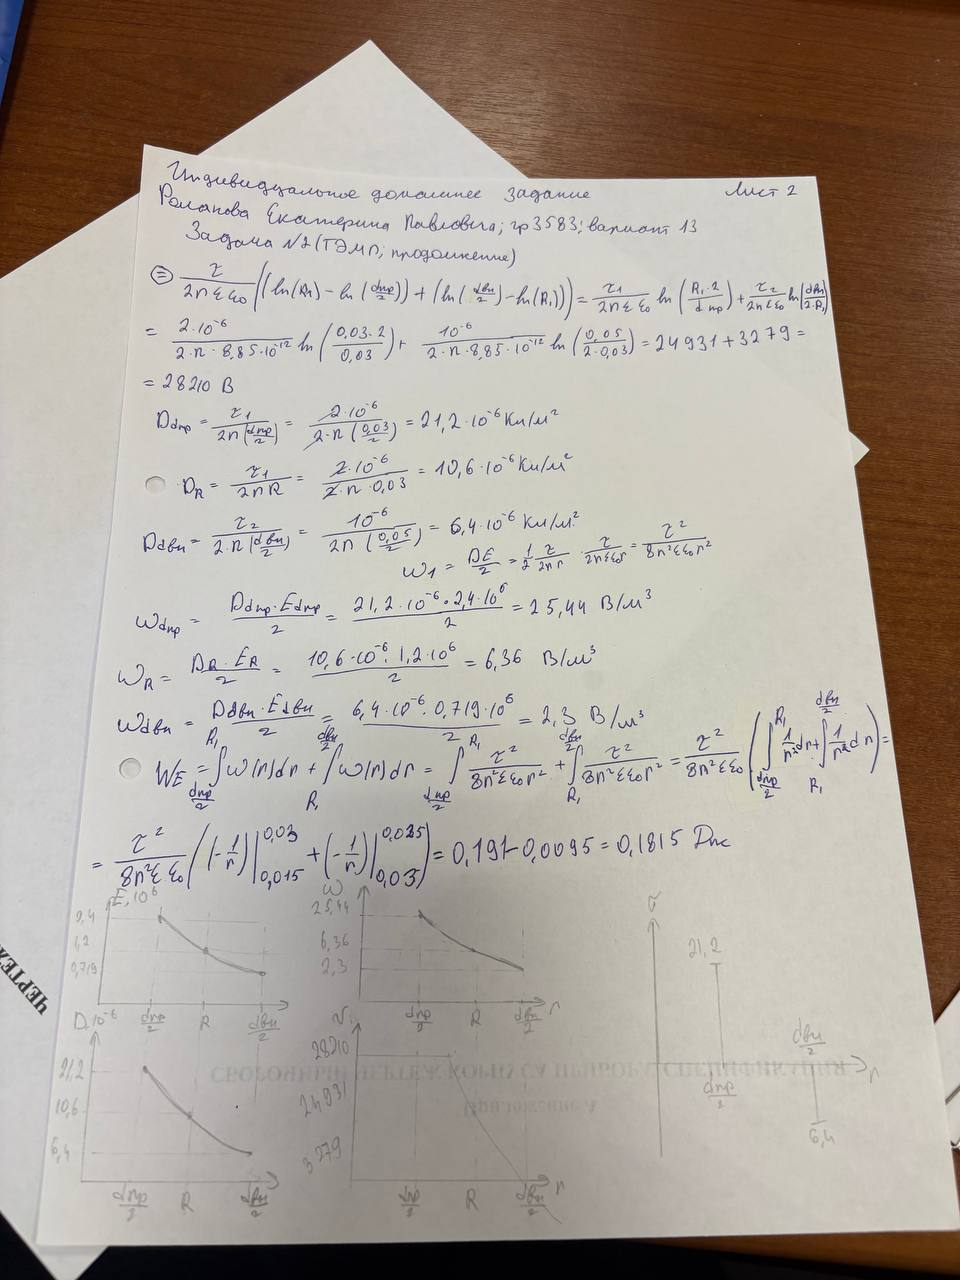 Индивидуальное домашнее задание Лист 2
Романова Екатерина Павловна; гр 3583; вариант 13
Задача №2 (ТЭМП; продолжение)
⊜ τ/(2πεε₀) ((ln(R₁) - ln(dпр/2)) + (ln(dвн/2) - ln(R₁))) = τ₁/(2πεε₀) ln(R₁·2/dпр) + τ₂/(2πεε₀) ln(dвн/(2·R₁))
= 2·10⁻⁶/(2·π·8,85·10⁻¹²) ln(0,03·2/0,03) + 10⁻⁶/(2·π·8,85·10⁻¹²) ln(0,05/(2·0,03)) = 24931 + 3279 =
= 28210 В
Ddпр = τ₁/(2π(dпр/2)) = 2·10⁻⁶/(2·π(0,03/2)) = 21,2·10⁻⁶ Кл/м²
DR = τ₁/(2πR) = 2·10⁻⁶/(2·π·0,03) = 10,6·10⁻⁶ Кл/м²
Ddвн = τ₂/(2·π(dвн/2)) = 10⁻⁶/(2π(0,05/2)) = 6,4·10⁻⁶ Кл/м²
w₁ = DE/2 = 1/2 τ/(2πr) · τ/(2πεε₀r) = τ²/(8π²εε₀r²)
wdпр = Ddпр·Edпр/2 = 21,2·10⁻⁶·2,4·10⁶/2 = 25,44 В/м³
wR = DR·ER/2 = 10,6·10⁻⁶·1,2·10⁶/2 = 6,36 В/м³
wdвн = Ddвн·Edвн/2 = 6,4·10⁻⁶·0,719·10⁶/2 = 2,3 В/м³
WE = ∫(dпр/2)^(R₁) w(r)dr + ∫(R₁)^(dвн/2) w(r)dr = ∫(dпр/2)^(R₁) τ²/(8π²εε₀r²) + ∫(R₁)^(dвн/2) τ²/(8π²εε₀r²) = τ²/(8π²εε₀) (∫(dпр/2)^(R₁) 1/r² dr + ∫(R₁)^(dвн/2) 1/r² dr) =
= τ²/(8π²εε₀) ((-1/r)|0,015^0,03 + (-1/r)|0,03^0,025) = 0,191-0,0095 = 0,1815 Дж
E,10⁶
2,4
1,2
0,719
dпр/2 R dвн/2
w
25,44
6,36
2,3
dпр/2 R dвн/2 r
σ
21,2
dпр/2
dвн/2
r
6,4
D,10⁻⁶
21,2
10,6
6,4
dпр/2 R dвн/2
V
28210
24931
3279
dпр/2 R dвн/2 r
СБОРОЧНЫЙ ЧЕРТЕЖ КОРПУСА ПРИБОРА. СПЕЦИФИКАЦИЯ
Приложение А
ЧЕРТЕЖ